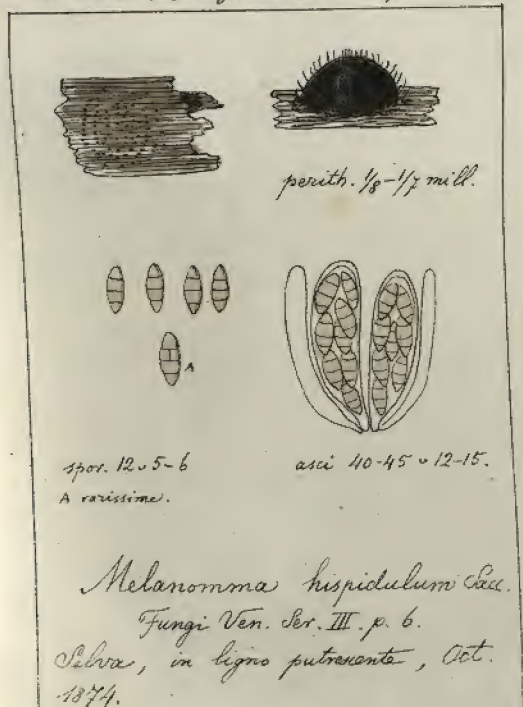 perith. 1/8-1/7 mill.
A
spor. 12 ᴗ 5-6
A rarissime.
asci 40-45 ᴗ 12-15.
Melanomma hispidulum Sacc.
Fungi Ven. Ser. III. p. 6.
Selva, in ligno putrescente, Oct.
1874.